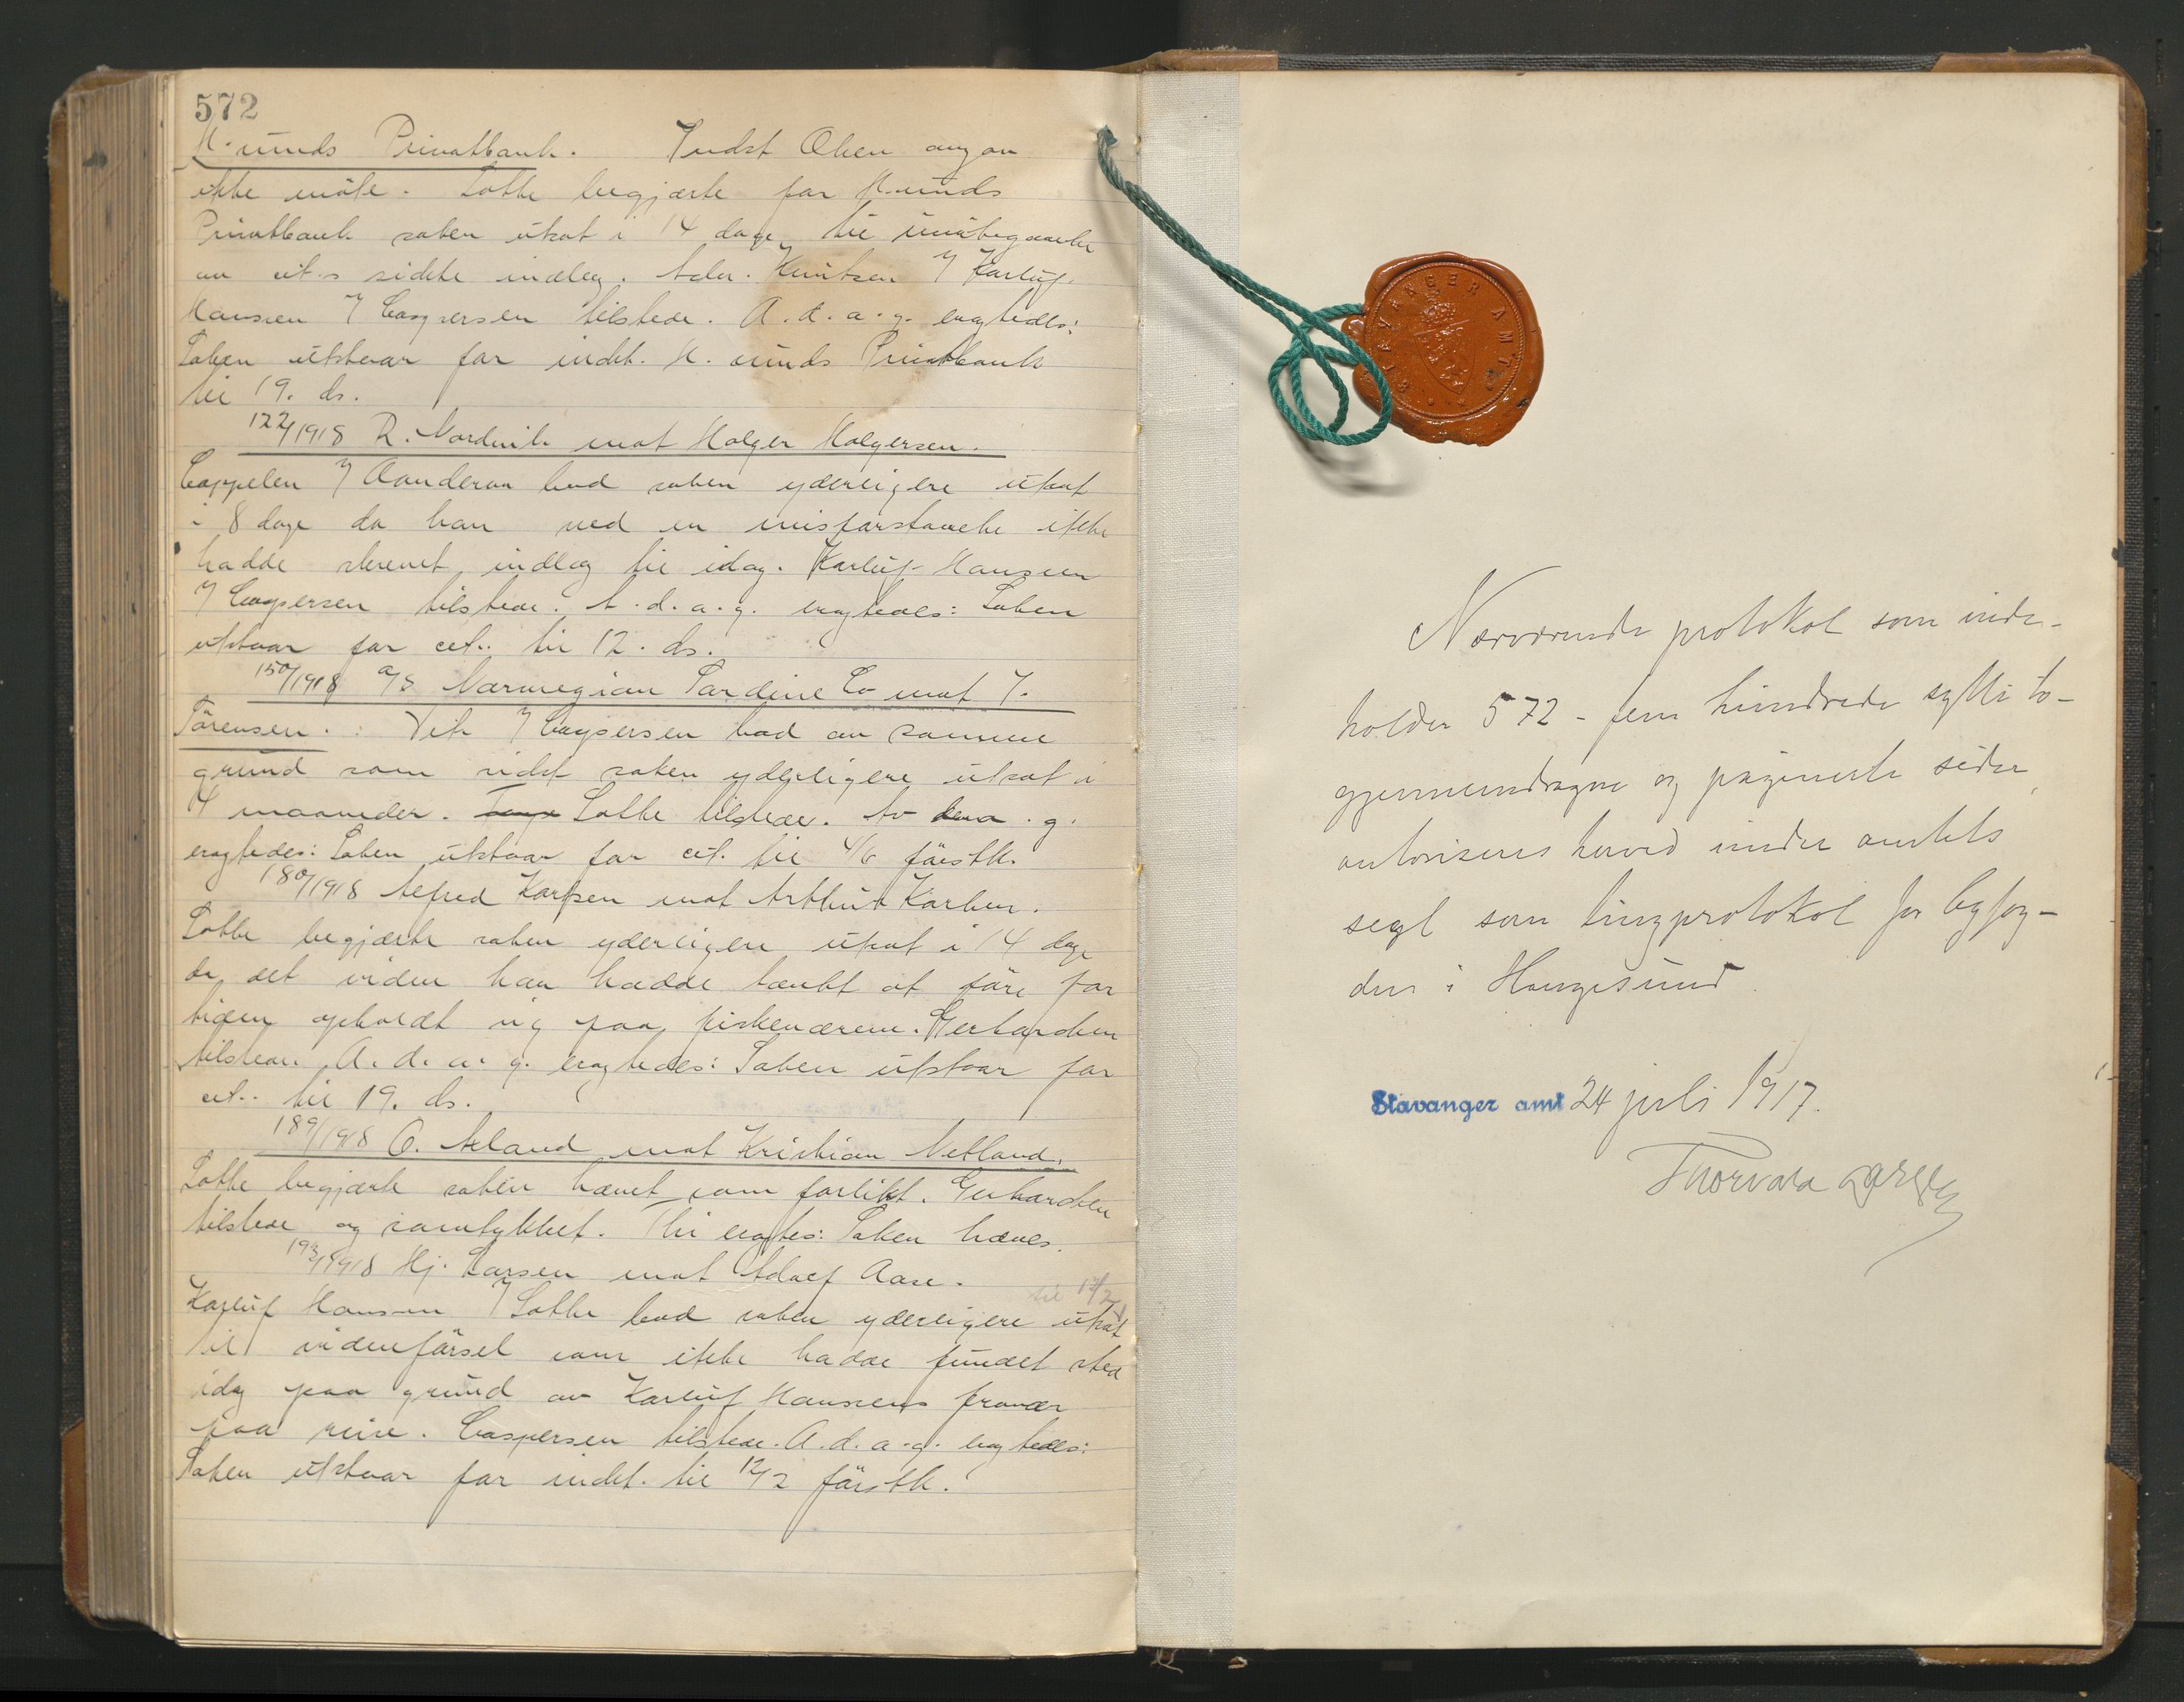 572
H.sunds Privatbank. Indst Olsen
ikke møte. Lothe begjærte for H.sunds
Privatbank saken utsat i 14 dage til imøtegaaelse
av cit.s sidste indlæg. Adv. Knutzen v/ Karluf-
Hanssen v/ Caspersen tilstede. A. d. a. g. eragtedes:
Saken utstaar for indst. H.sunds Privatbank
til 19. ds.
122/1918 R. Nordvik mot Holger Holgersen.
Cappelen v/ Aanderaa bad saken yderligere utsat
i 8 dage da han ved en misforstaaelse ikke
hadde skrevet indlæg til idag. Karluf-Hanssen
v/ Caspersen tilstede. A. d. a. g. eragtedes: Saken
utstaar for cit. til 12. ds.
150/1918 A/S Norwegian Sardine Co mot J.
Sörensen. : Vik v/ Caspersen bad av samme
grund som sidst saken yderligere utsat i
4 maaneder. Lothe tilstede. Av dena. g.
eragtedes: Saken utstaar for cit. til 4/6 førstk.
180/1918 Alfred Karlsen mot Arthur Karlsen.
Lothe begjærte saken yderligere utsat i 14 dage
da det vidne han hadde tænkt at føre for
tiden opholdt sig paa fiskeværene. Gerhardsen
tilstede. A. d. a. g. eragtedes: Saken utstaar for
cit. til 19. ds.
189/1918 O. Aaland mot Kristian Netland.
Lothe begjærte saken hævet som forlikt. Gerhardsen
tilstede og samtykket. Thi eragtes: Saken hæves.
193/1918 Hj. Larsen mot Adolf Aase.
til 12/2
Karluf Hanssen v/ Lothe bad saken yderligere utsat
til vidneførsel som ikke hadde fundet sted
idag paa grund av Karluf Hanssens fravær
paa reise. Caspersen tilstede. A. d. a. g. eragtedes:
Saken utstaar for indst. til 12/2 førstk.
STAVANGER AMT
Nærværende protokol som inde-
holder 572 - fem hundrede sytti to -
gjennemdragne og paginerte sider,
autoriseres herved under amtets
segl som tingprotokol for byfog-
den i Haugesund.
Stavanger amt 24 juli 1917.
Thorvald